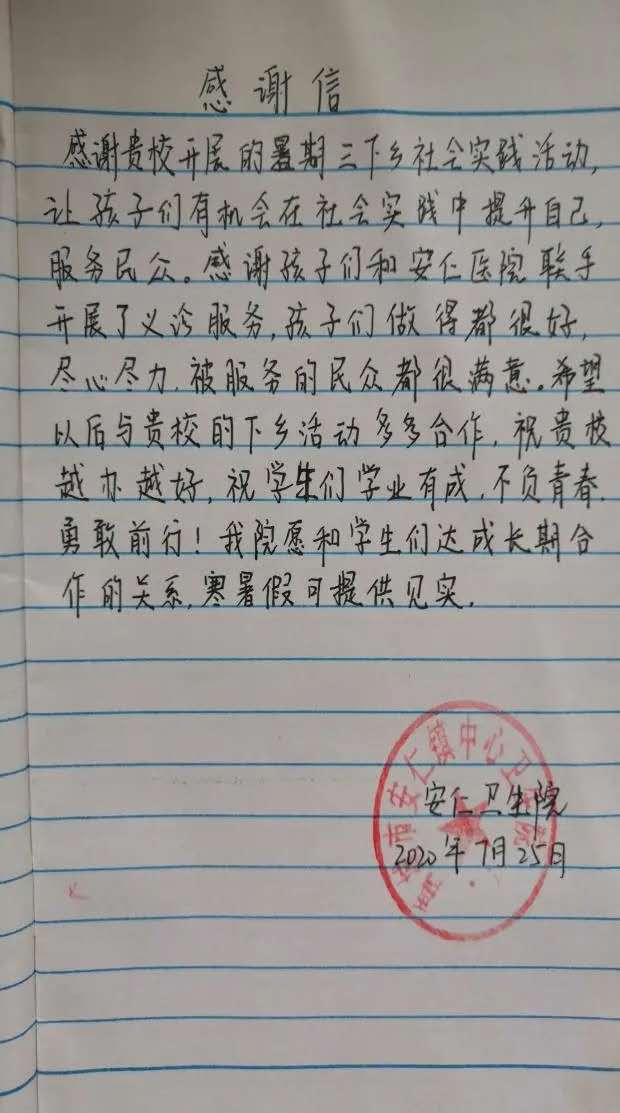 感谢信
感谢贵校开展的暑期三下乡社会实践活动,
让孩子们有机会在社会实践中提升自己,
服务民众。感谢孩子们和安仁医院联手
开展了义诊服务,孩子们做得都很好,
尽心尽力,被服务的民众都很满意。希望
以后与贵校的下乡活动多多合作,祝贵校
越办越好,祝学生们学业有成,不负青春,
勇敢前行!我院愿和学生们达成长期合
作的关系,寒暑假可提供见实.
市安仁镇中心卫生院
安仁卫生院
2020年7月25日